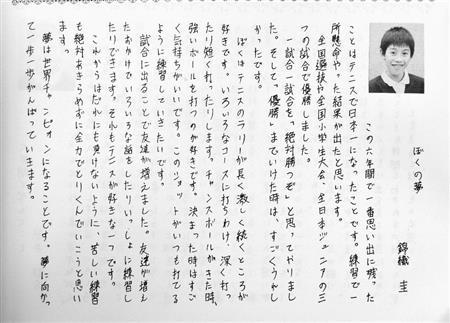 ぼくの夢
錦織 圭
この六年間で一番思い出に残った
ことはテニスで日本一になったことです。練習で一
所懸命やった結果が出たと思います。
全国選抜や全国小学生大会、全日本ジュニアの三
つの試合で優勝しました。
一試合一試合を、「絶対勝つぞ」と思ってやりまし
た。そして、「優勝」までいけた時は、すごくうれし
かったです。
ぼくはテニスのラリーが長く激しく続くところが
好きです。いろいろなコースに打ちわけ、深く打っ
たり短く打ったりします。チャンスボールがきた時、
強いボールを打つのが好きです。決まった時はすご
く気持ちがいいです。このショットがいつも打てる
ように練習していきたいです。
試合に出ることで友達が増えました。友達が増え
たおかげでいろいろな話をしたりいっしょに練習し
たりできます。それもテニスが好きな一つです。
これからはだれにも負けないように、苦しい練習
も絶対あきらめずに全力でとりくんでいこうと思い
ます。
夢は世界チャンピオンになることです。夢に向かっ
て一歩一歩がんばっていきます。